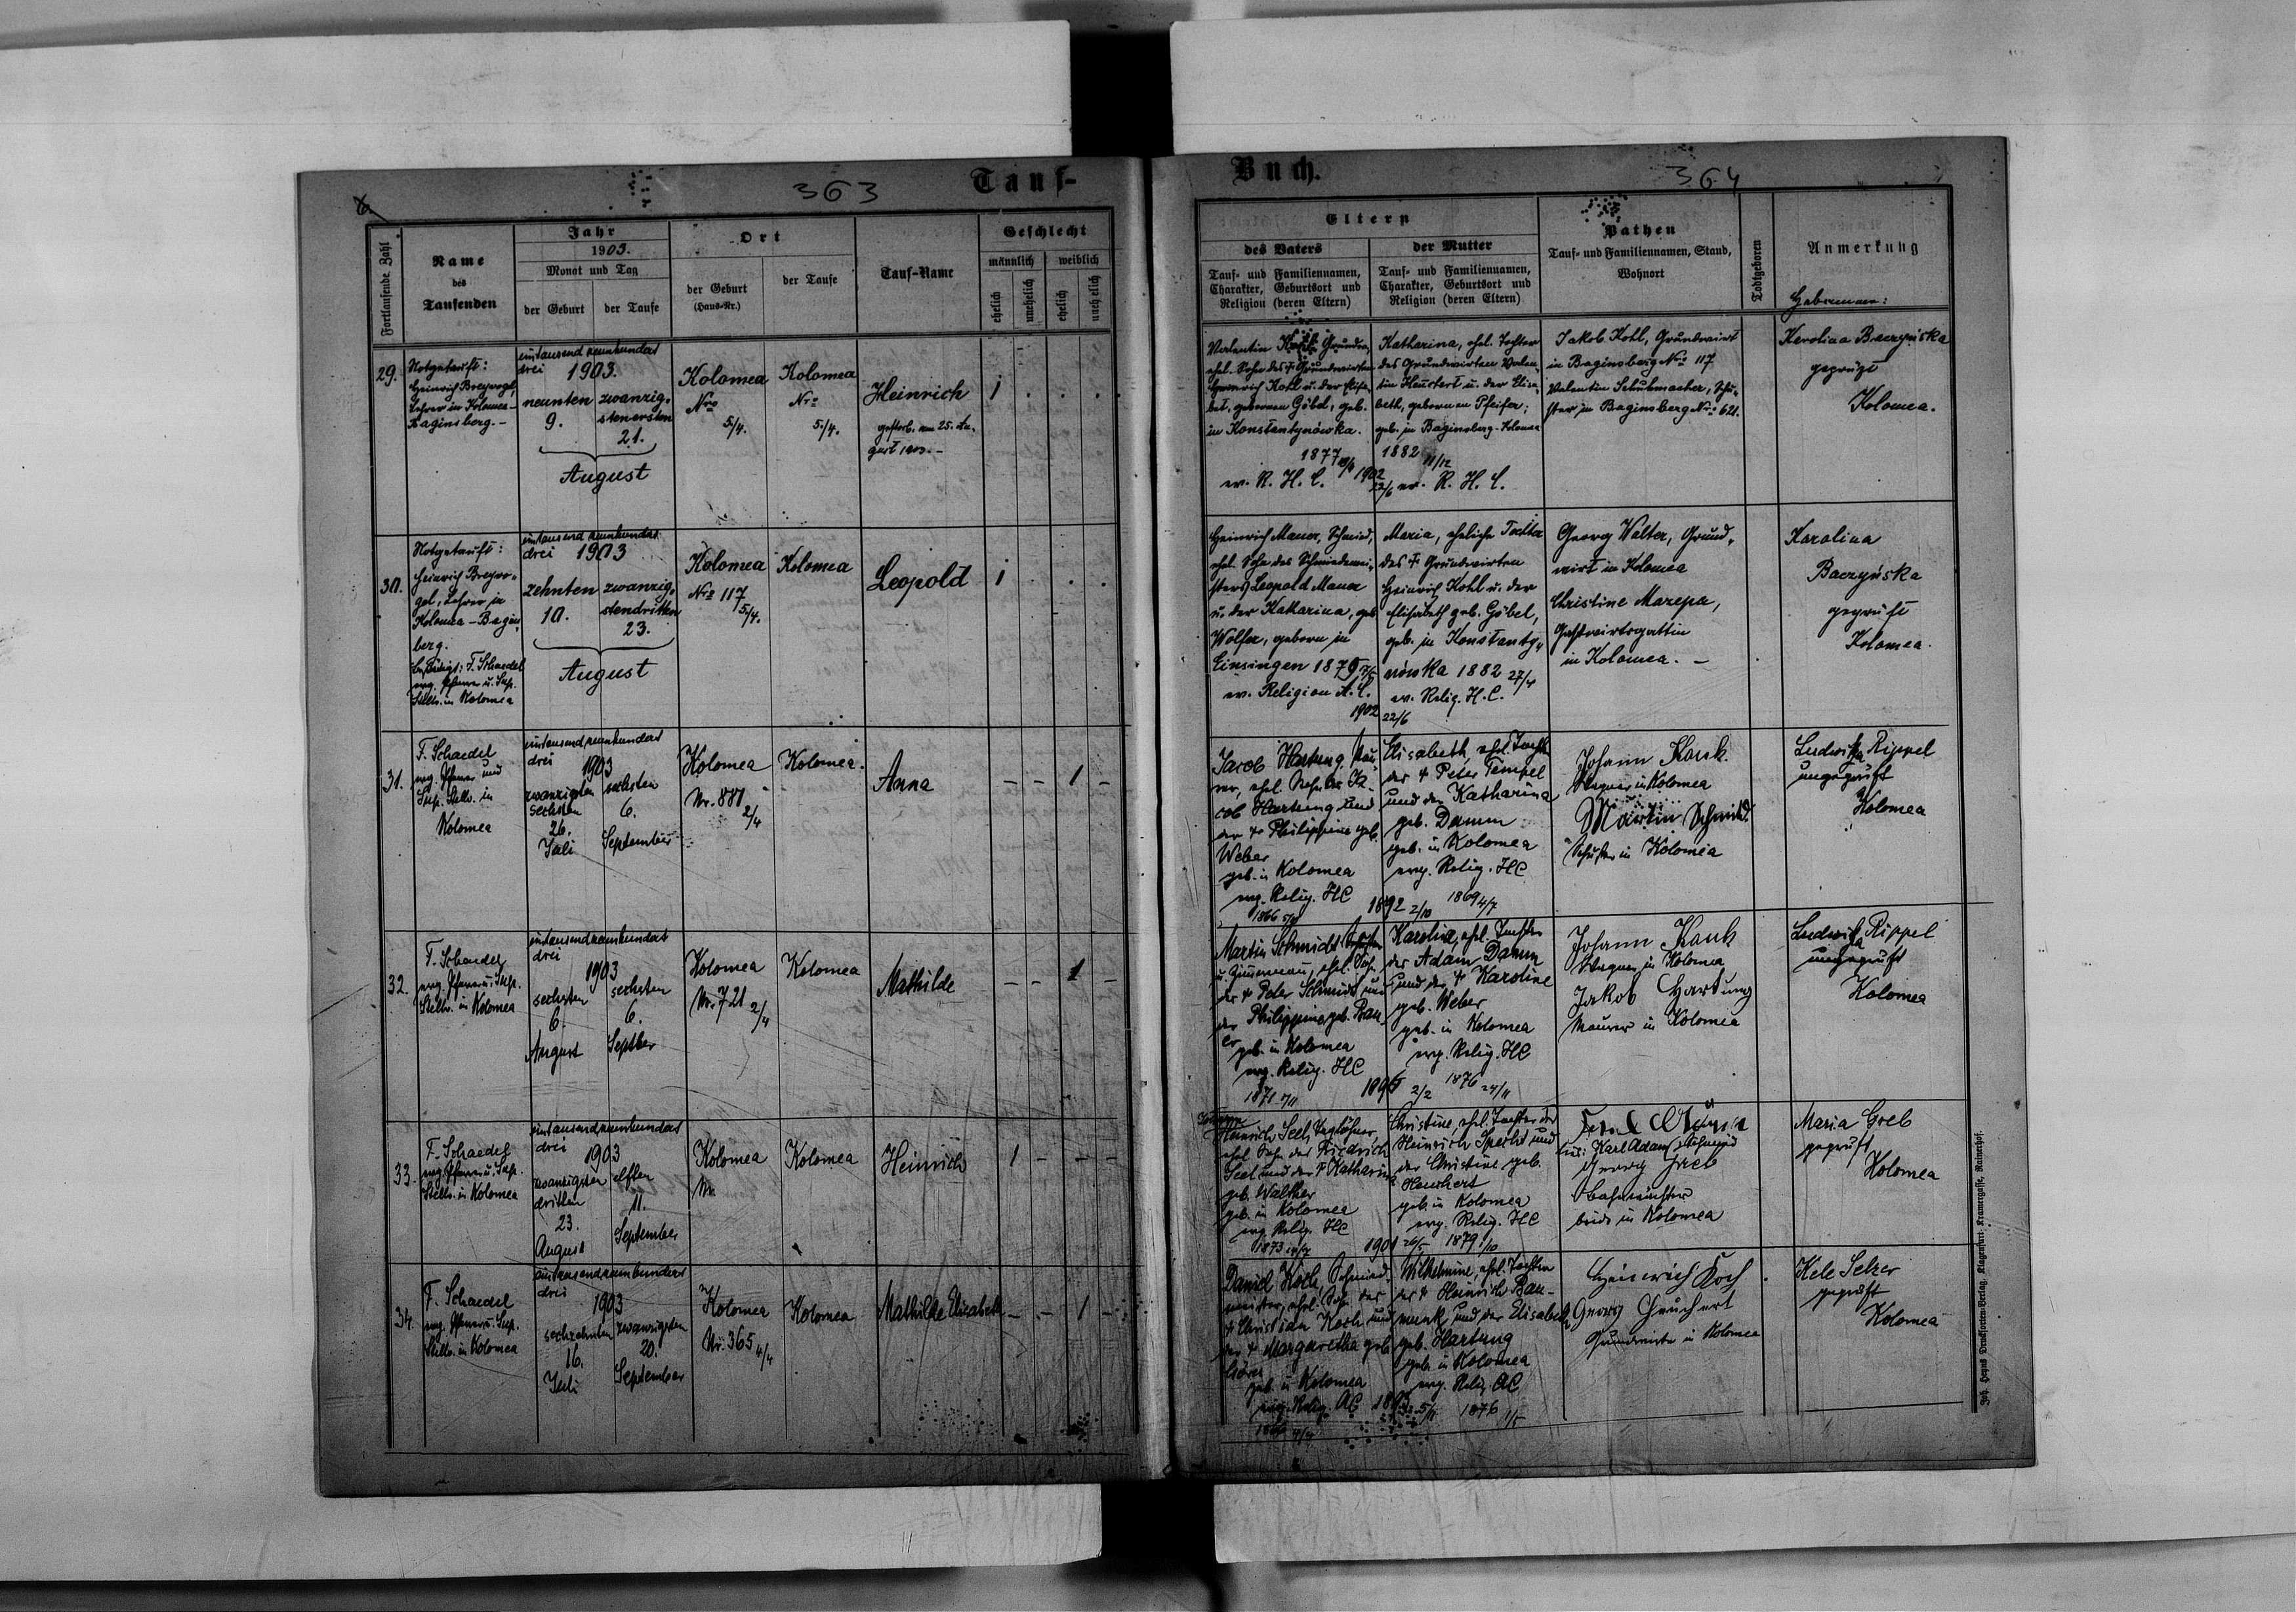 363
Tauf-
Fortlaufende Zahl
Name
des
Taufenden
Jahr
1903.
Monat und Tag
der Geburt
der Taufe
Ort
der Geburt
(Haus-Nr.)
der Taufe
Tauf-Name
Geschlecht
männlich
weiblich
ehelich
unehelich
ehelich
unehelich
29.
Notgetauft:
Heinrich Breyvogel,
Lehrer in Kolomea-
Baginsberg.-
eintausend neunhundert
drei 1903.
neunten
9.
zwanzig-
stenersten
21.
August
Kolomea
Nro
5/4.
Kolomea
Nro
5/4.
Heinrich
gestorb. am 25. Au-
gust 1903.-
1 . . .
30.
Notgetauft:
Heinrich Breyvo-
gel, Lehrer in
Kolomea-Bagins-
berg.
Bestätigt: F. Schaedel
evg. Pfarrer u. Sup.
Stellv. in Kolomea
eintausend neunhundert
drei 1903
zehnten
10.
zwanzig-
stendritten
23.
August
Kolomea
Nro 117
5/4.
Kolomea
Leopold
1 . . .
31.
F. Schaedel
evg. Pfarrer und
Sup. Stellv. in
Kolomea
eintausendneunhundert
drei
1903
zwanzigsten
sechsten
26.
Juli
sechsten
6.
September
Kolomea
Nr. 881
2/4
Kolomea.
Anna
– – 1 –
32.
F. Schaedel
evg. Pfarrer u. Sup.
Stellv. in Kolomea
eintausendneunhundert
drei
1903
sechsten
6.
August
sechsten
6.
Septber
Kolomea
Nr. 721 2/4
Kolomea
Mathilde
– – 1 –
33.
F. Schaedel
evg. Pfarrer u. Sup.
Stellv. in Kolomea
eintausendneunhundert
drei
1903
zwanzigsten
dritten
23.
August
elften
11.
September
Kolomea
Nr.
Kolomea
Heinrich
1 – – –
34.
F. Schaedel
evg. Pfarrer u. Sup.
Stellv. in Kolomea
eintausendneunhundert
drei
1903
sechzehnten
16.
Juli
zwanzigsten
20.
September
Kolomea
Nr. 365 4/4
Kolomea
Mathilde Elisabeth
– – 1 –
Buch.
364
Eltern
des Vaters
Tauf- und Familiennamen,
Charakter, Geburtsort und
Religion (deren Eltern)
der Mutter
Tauf- und Familiennamen,
Charakter, Geburtsort und
Religion (deren Eltern)
Pathen
Tauf- und Familiennamen, Stand,
Wohnort
Todtgeboren
Anmerkung
Hebamme:
Valentin Kohl Grundw.,
ehel. Sohn des † Grundwirten
Heinrich Kohl u. der Elisa-
bet, gebornen Göbel, geb.
in Konstantynówka.
1877
ev. R. H. C.
1902
22/6
Katharina, ehel. Tochter
des Grundwirten Valen-
tin Heuchert u. der Elisa-
beth, gebornen Pfeifer;
geb. in Baginsberg-Kolomea
1882 11/12
ev. R. H. C.
Jakob Kohl, Grundwirt
in Baginsberg No 117
Valentin Schuhmacher, Schu-
ster in Baginsberg No 621.
Karolina Baczyńska
geprüft
Kolomea.
Heinrich Manz, Schmied,
ehel. Sohn des Schmiedemei-
sters Leopold Manz
u. der Katharina, geb.
Wolfer, geboren in
Einsingen 1875
ev. Religion A. C.
1902
22/6
Maria, eheliche Tochter
des † Grundwirten
Heinrich Kohl u. der
Elisabeth geb. Göbel,
geb. in Konstanty-
nówka 1882 27/4
ev. Relig. H. C.
Georg Walter, Grund-
wirt in Kolomea
Christine Mazepa,
Gastwirtsgattin
in Kolomea. –
Karolina
Baczyńska
geprüft
Kolomea.
Jacob Hartung, Mau-
rer, ehel. Sohn des Ja-
cob Hartung und
der † Philippine geb.
Weber
geb. in Kolomea
evg. Relig. HC
1866
1892 2/10
Elisabeth, ehel. Tochter
der † Peter Tempel
und der Katharina
geb. Damm
geb. in Kolomea
evg. Relig. HC
1869 4/7
Johann Kauk
Wagner in Kolomea
Martin Schmidt
Schuster in Kolomea
Ludwika Rippel
ungeprüft
Kolomea
Martin Schmidt Schuster
ehel. Sohn
der † Peter Schmidt und
der Philippine geb. Bau-
er
geb. in Kolomea
evg. Relig. HC
1871
2/2
Karolina, ehel. Tochter
der Adam Damm
und der † Karoline
geb. Weber
geb. in Kolomea
evg. Relig. HC
1876 24/11
Johann Kauk
Wagner in Kolomea
Jakob Hartung
Maurer in Kolomea
Ludwika Rippel
ungeprüft
Kolomea
Heinrich Seel, Taglöhner
ehel. Sohn der Friedrich
Seel und der † Katharina
geb. Walther
geb. in Kolomea
evg. Relig. HC
1873
1901 26/5
Christine, ehel. Tochter der
Heinrich Specht und
der Christine geb.
Heuchert
geb. in Kolomea
evg. Relig. HC
1879 1/10
Karl Adam Schmied
Georg Greb
Bahnwächter
beide in Kolomea
Maria Greb
geprüft
Kolomea
Daniel Koch, Schmied-
meister, ehel. Sohn des
† Christian Koch und
der † Margaretha geb.
geb. in Kolomea
evg. Relig. AC
5/11
Wilhelmine, ehel. Tochter
der † Heinrich Bau-
munk und der Elisabeth
geb. Hartung
geb. in Kolomea
evg. Relig. AC
1876 1/5
Heinrich Koch
Georg Heuchert
Grundwirte in Kolomea
Kele Selzer
geprüft
Kolomea
Joh. Heyns Drucksorten-Verlag, Klagenfurt, Kramergasse, Rainerhof.